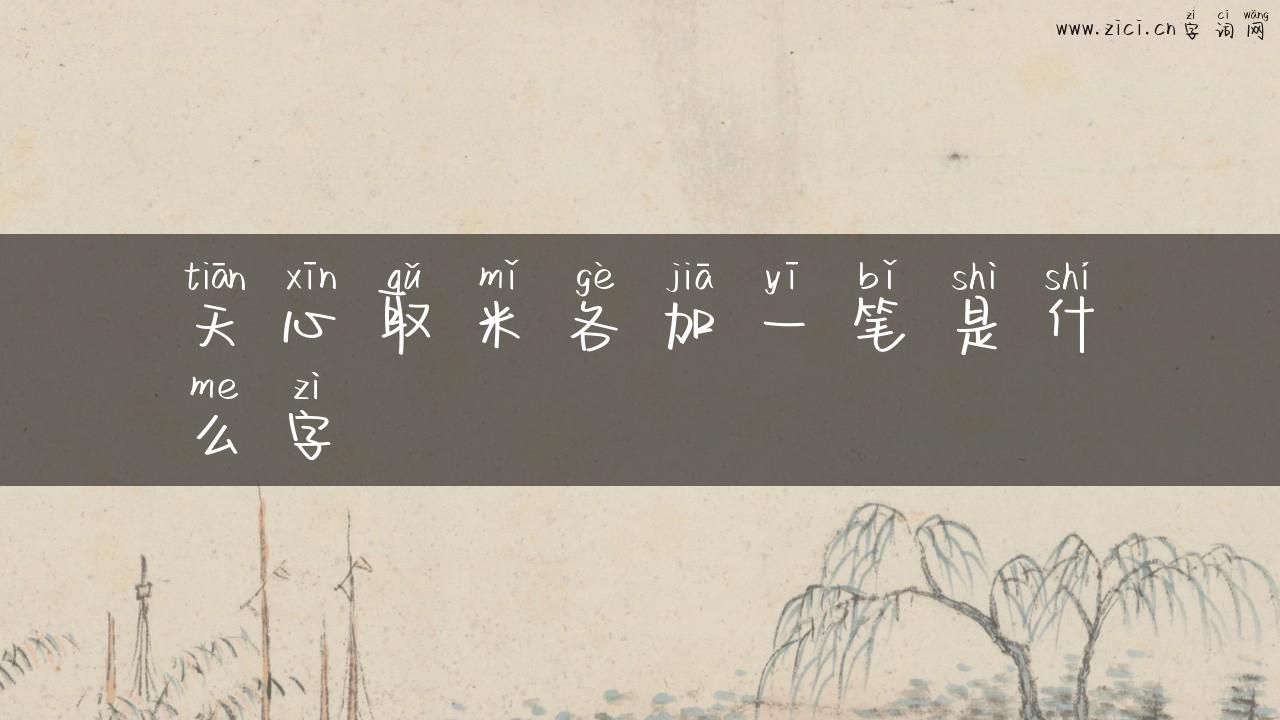 zì cí wǎng
www.zici.cn 字 词 网
tiān xīn qǔ mǐ gè jiā yī bǐ shì shí
天 心 取 米 各 加 一 笔 是 什
me zì
么 字